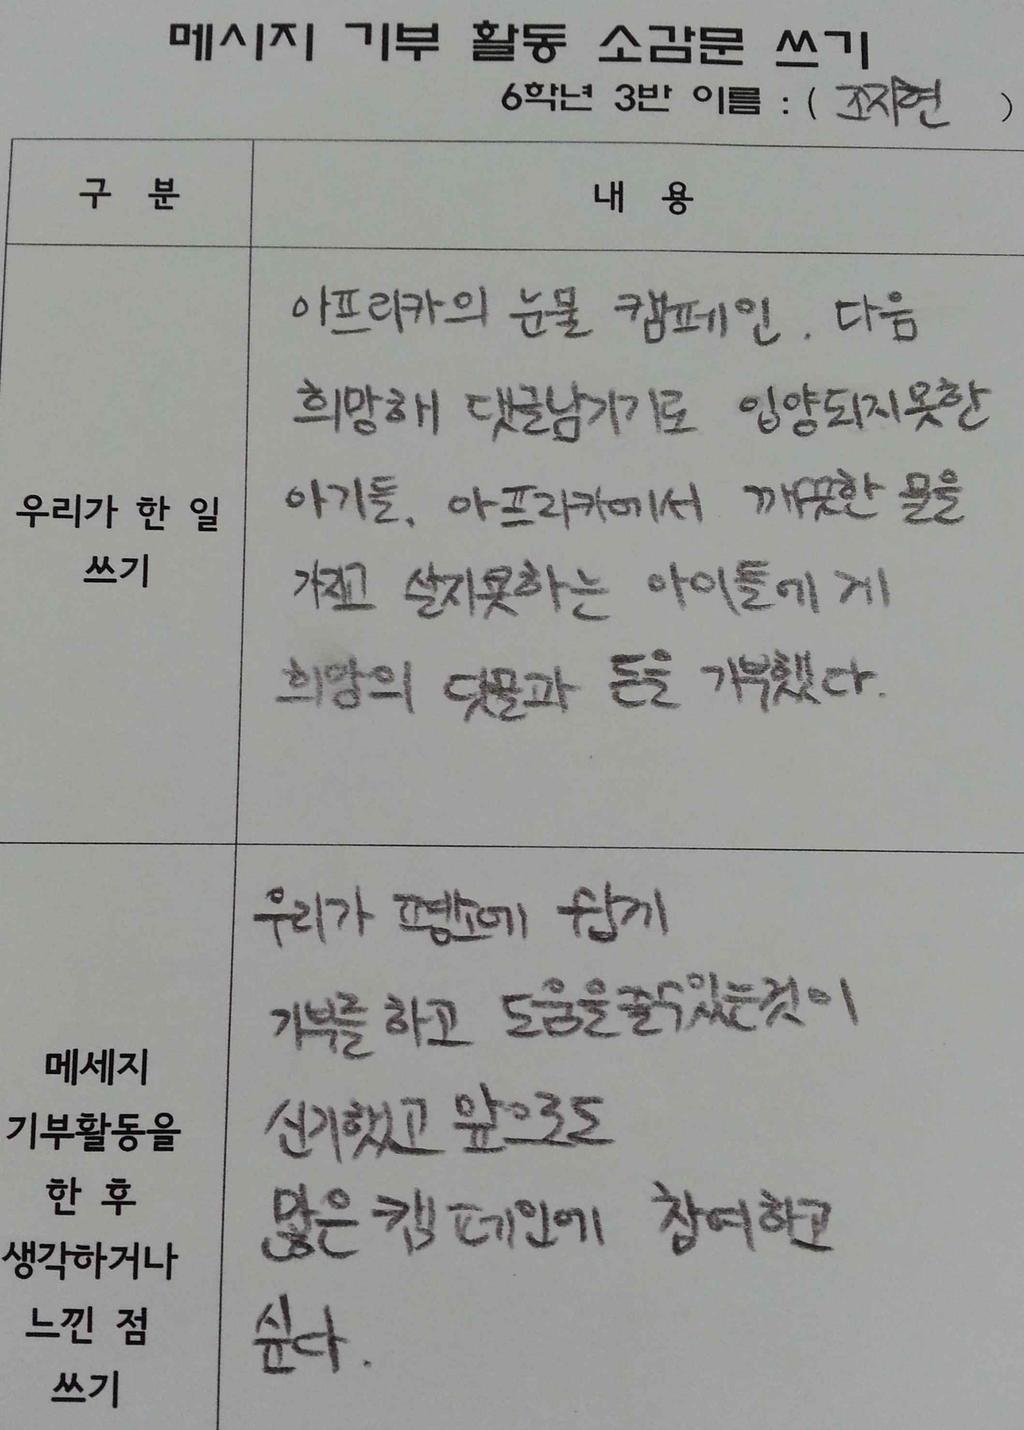 메시지 기부 활동 소감문 쓰기
6학년 3반 이름 : ( 조지현 )
구 분
내 용
우리가 한 일
쓰기
아프리카의 눈물 캠페인. 다음
희망해 댓글남기기로 입양되지못한
아기들, 아프리카에서 깨끗한 물을
가지고 살지못하는 아이들에게
희망의 댓글과 돈을 기부했다.
메세지
기부활동을
한 후
생각하거나
느낀 점
쓰기
우리가 평소에 쉽게
기부를 하고 도움을줄수있는것이
신기했고 앞으로도
많은 캠페인에 참여하고
싶다.